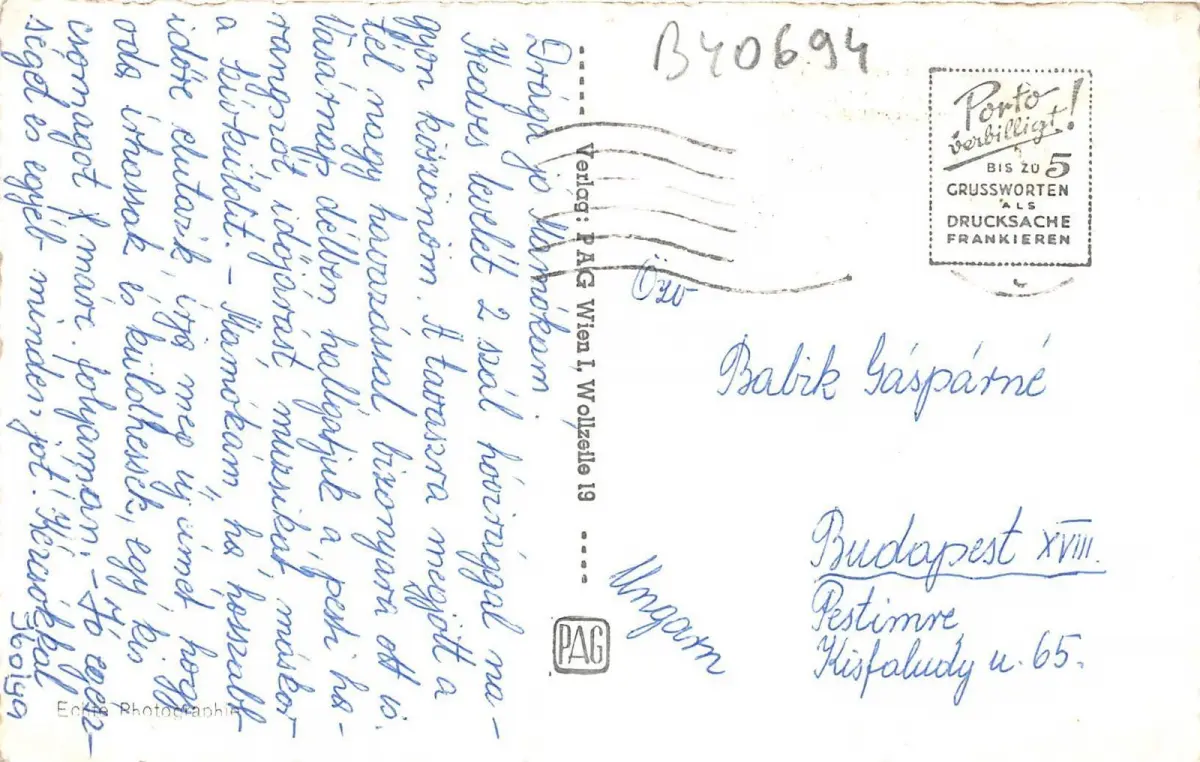 B40694
Porto
verbilligt!
BIS ZU 5
GRUSSWORTEN
ALS
DRUCKSACHE
FRANKIEREN
Drága jó Mamókám!
Kedves levelét 2 szál hóvirággal na-
gyon köszönöm. A tavaszra megjött a
tél nagy havazással bizonyára ott is.
Vasárnap délben hallgatjuk a pesti ha-
rangszót, időjárást, muzsikát, máskor
a Szürkülőt. – Mamókám, ha hosszabb
időre elutazik, írja meg új címét, hogy
oda írhassak és küldhessek, egy kis
csomagot f. márc. folyamán. – Jó egész-
séget és egyéb minden jót! Kézcsókkal
Ibolya
Verlag: PAG Wien I, Wollzeile 19
PAG
Echte Photographie
Özv
Babik Gáspárné
Budapest XVIII.
Pestimre
Kisfaludy u. 65.
Ungarn